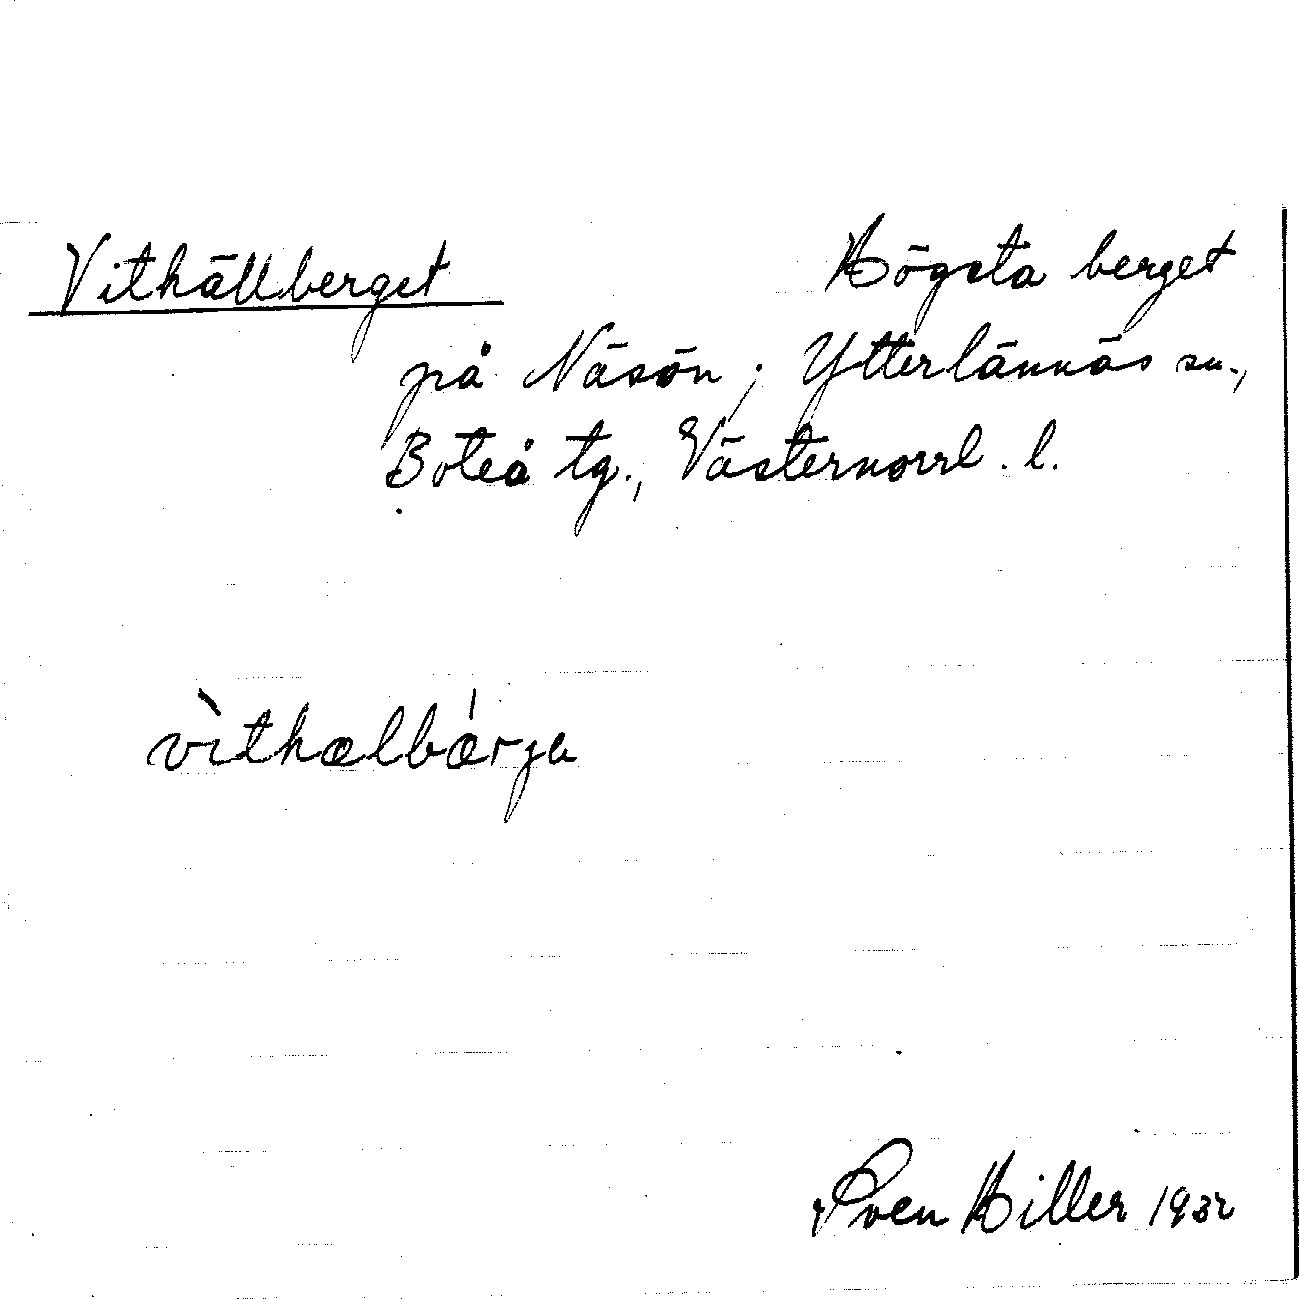 Vithällberget Högsta berget
på Näsön; Ytterlännäs sn.,
Boteå tg., Västernorrl. l.
vìthælbǽrje
Sven Hiller 1932